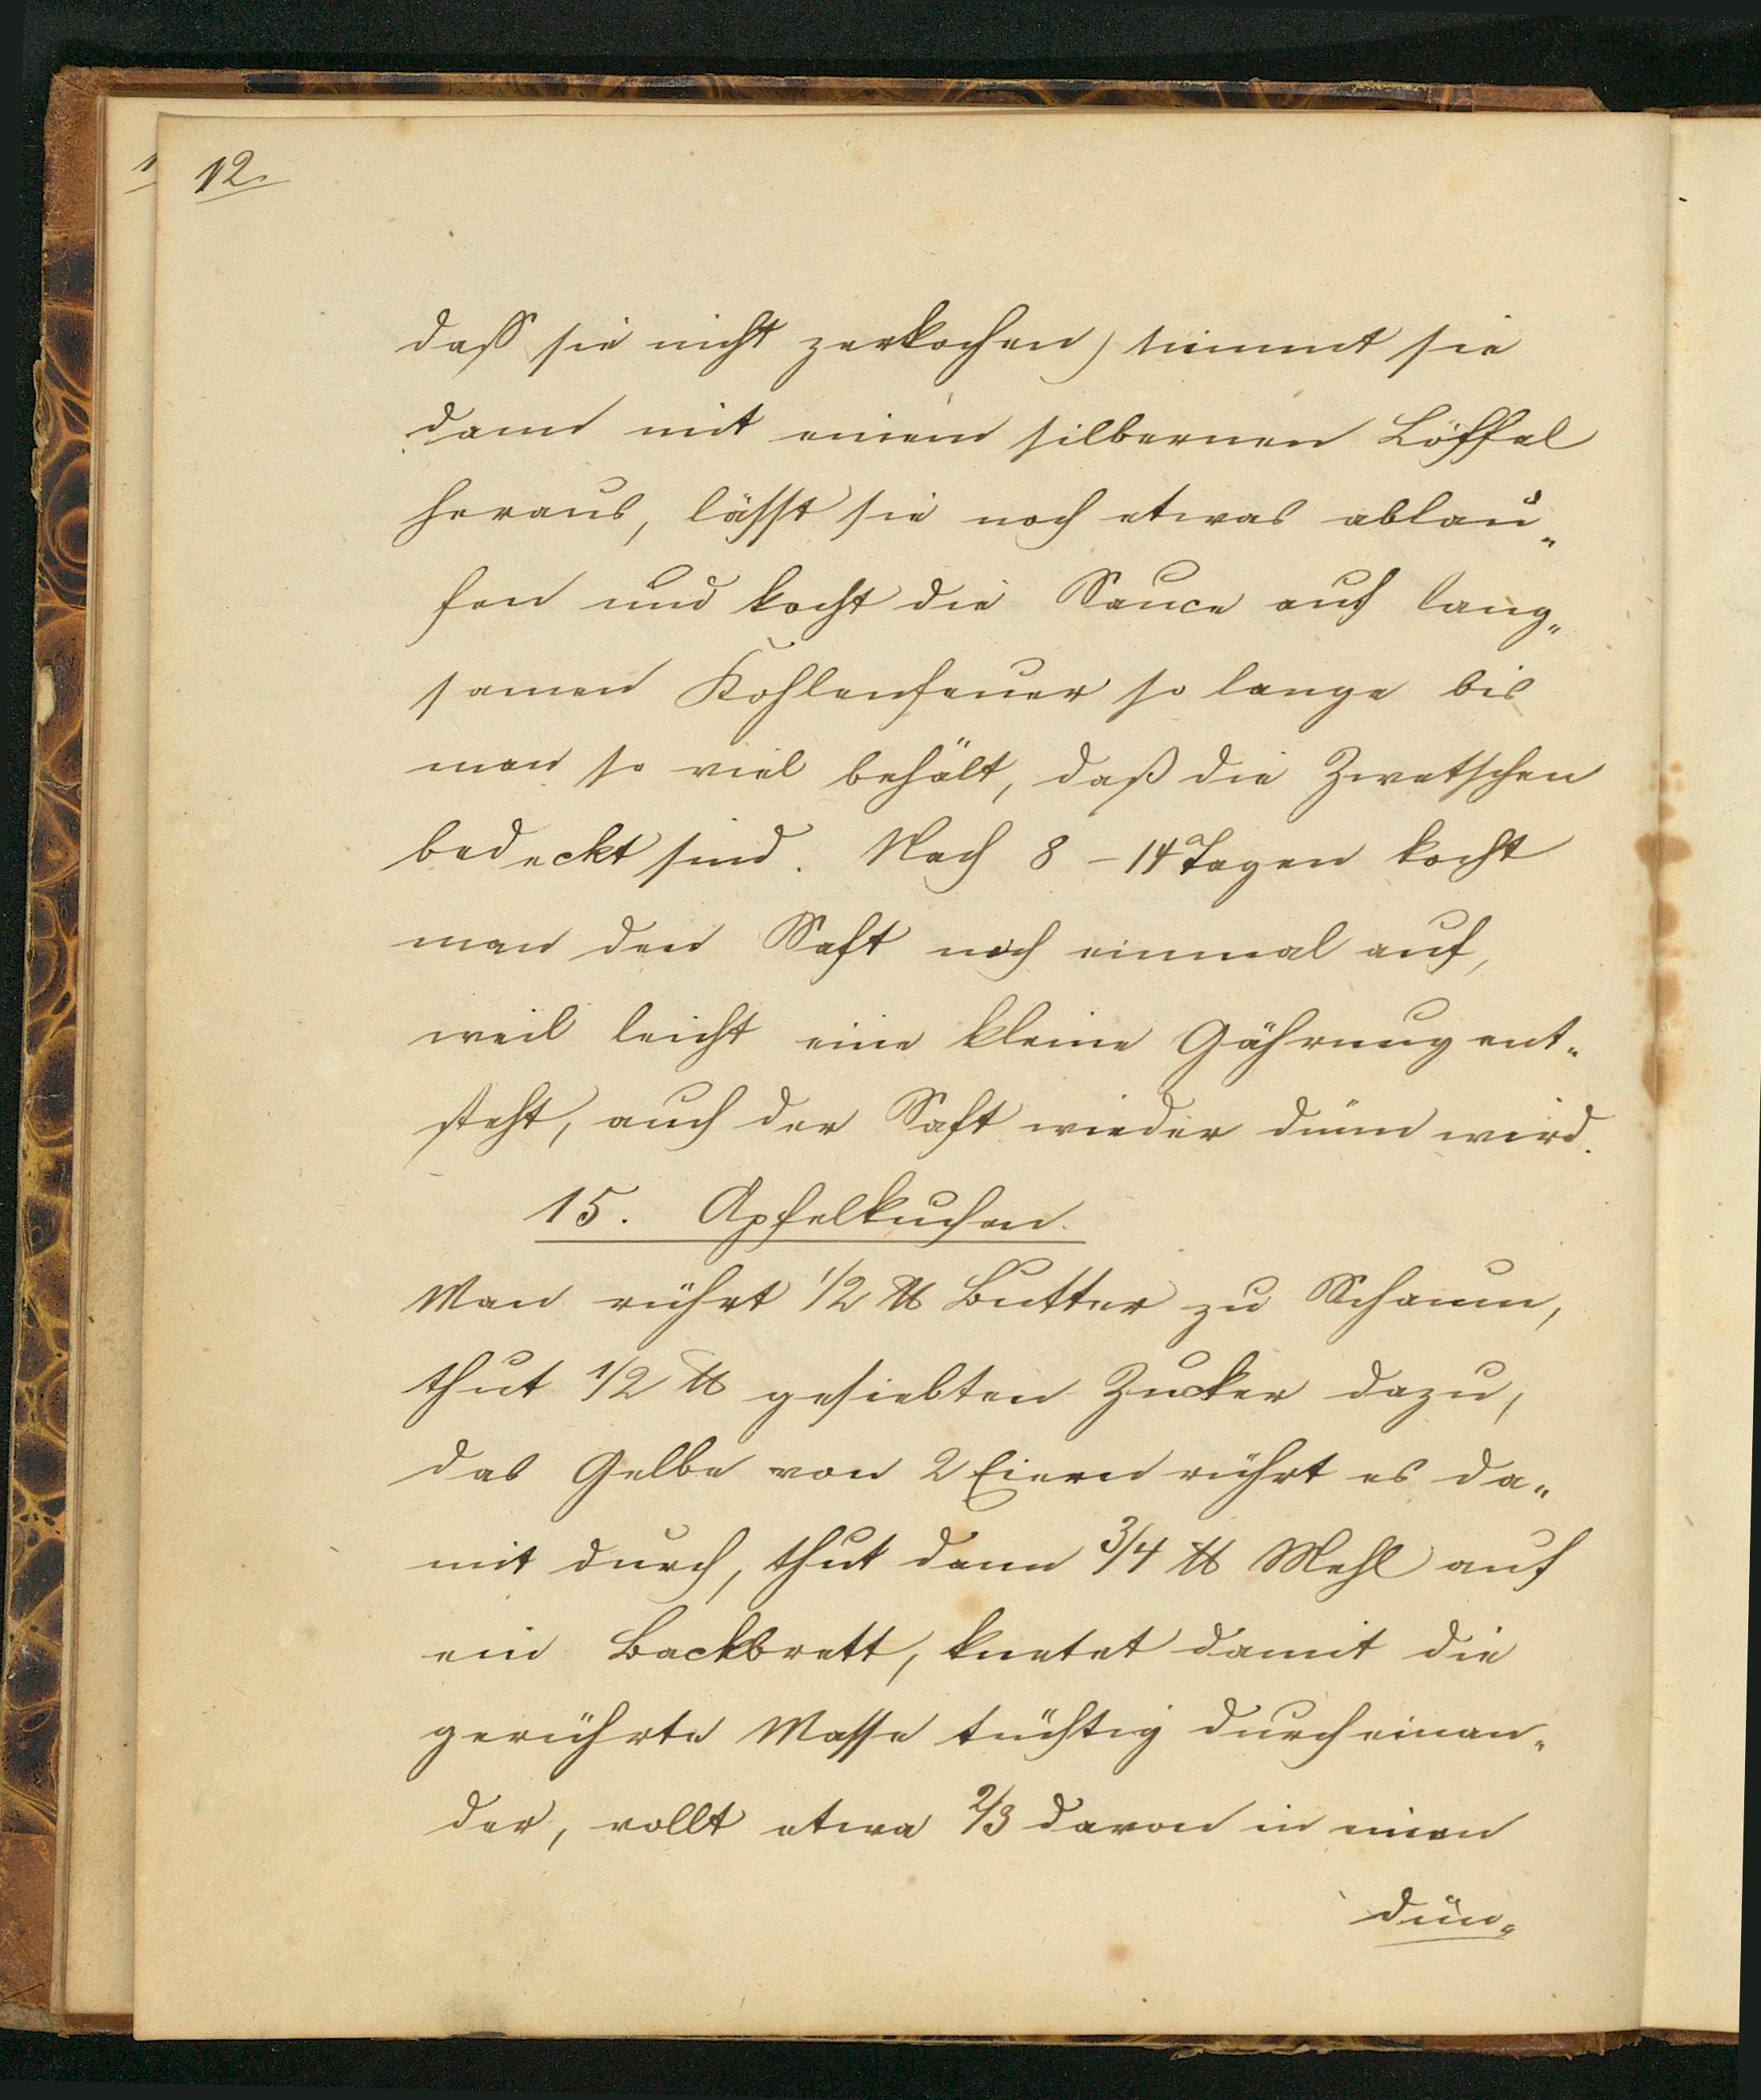 12.
daß sie nicht zerkochen) nimmt sie
dann mit einem silbernen Löffel
heraus, lässt sie noch etwas ablau„
fen und kocht die Sauce auf lang„
samen Kohlenfeuer so lange bis
man so viel behält, daß die Zwetschen
bedeckt sind. Nach 8 - 14 Tagen kocht
man den Saft noch einmal auf,
weil leicht eine kleine Gährung ent„
steht, auch der Saft wieder dünn wird.
15. Apfelkuchen.
Man rührt 1/2 ℔ Butter zu Schaum,
thut 1/2 ℔ gesiebten Zucker dazu,
das Gelbe von 2 Eiern rührt es da„
mit durch, thut dann 3/4 ℔ Mehl auf
ein Backbrett, knetet damit die
gerührte Masse tüchtig durcheinan„
der, rollt etwa 2/3 davon in einen
dün„